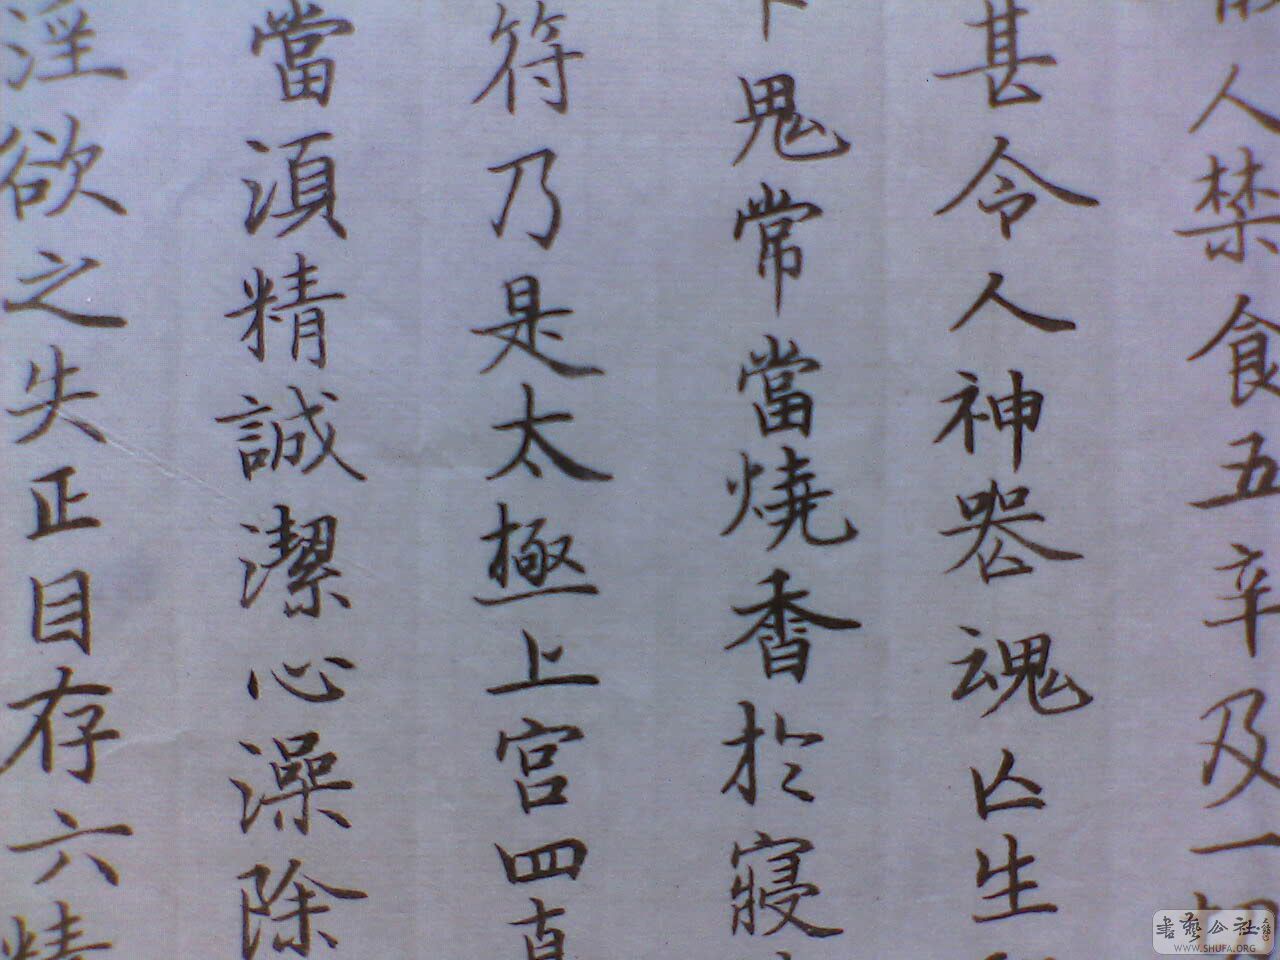 人禁食五辛及一切
甚令人神喪魂亡生
下鬼常當燒香於寢
符乃是太極上宮四真
當須精誠潔心澡除
淫欲之失正目存六精
書藝公社
WWW.SHUFA.ORG